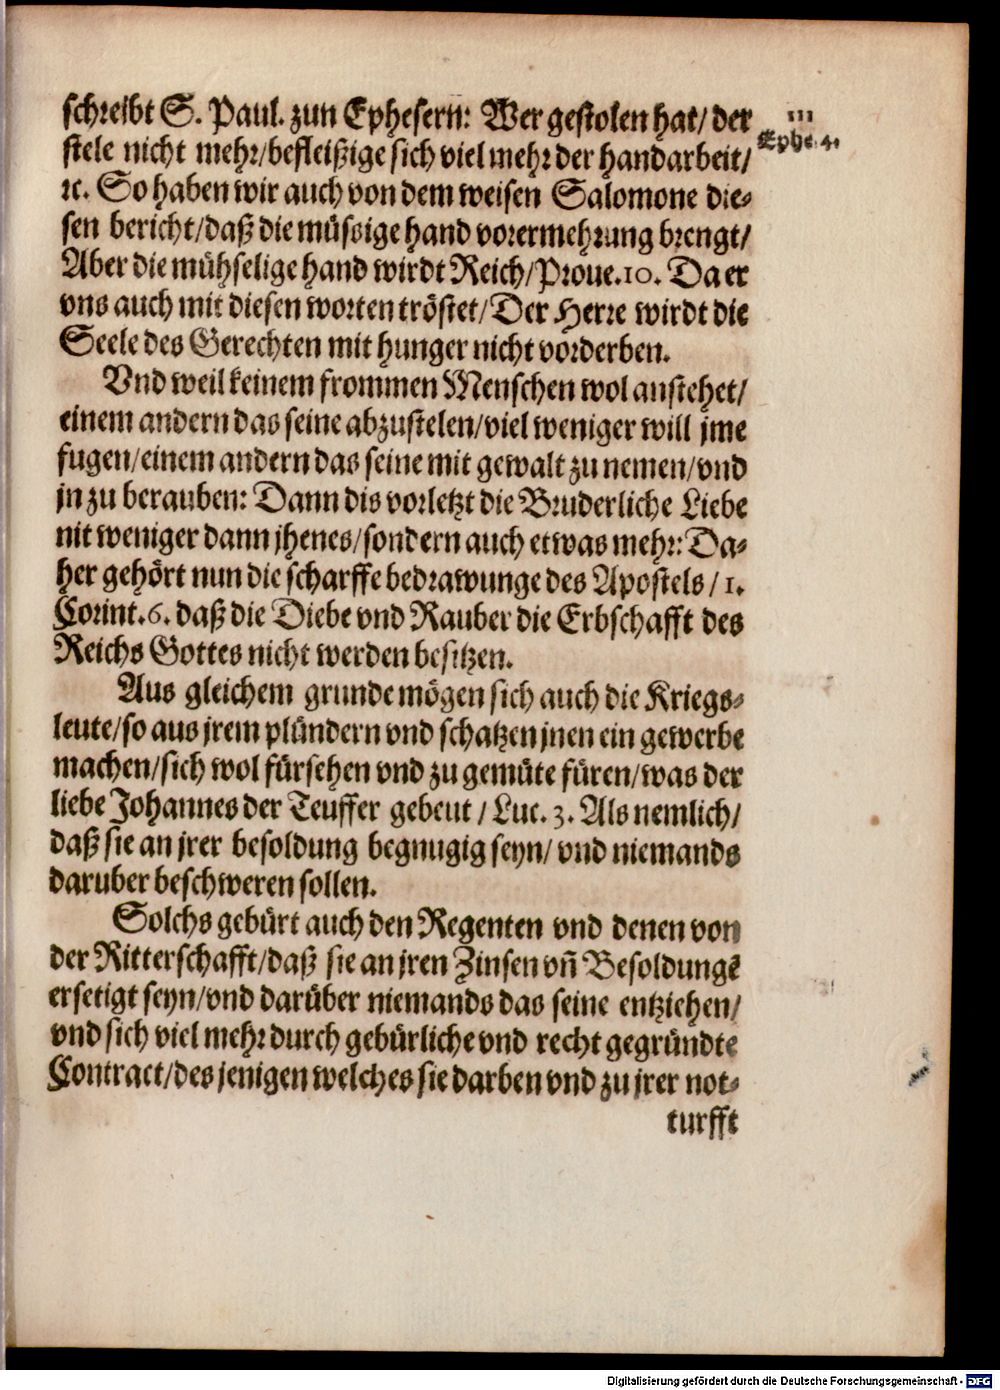 schreibt S. Paul. zun Ephesern: Wer gestolen hat/ der
stele nicht mehr/befleißige sich viel mehr der handarbeit/
ꝛc. So haben wir auch von dem weisen Salomone die⸗
sen bericht/daß die müssige hand vorermehrung brengt/
Aber die mühselige hand wirdt Reich/Proue.10. Da er
vns auch mit diesen worten tröstet/Der Herre wirdt die
Seele des Gerechten mit hunger nicht vorderben.
Vnd weil keinem frommen Menschen wol anstehet/
einem andern das seine abzustelen/viel weniger will jme
fugen/einem andern das seine mit gewalt zu nemen/vnd
jn zu berauben: Dann dis vorletzt die Bruderliche Liebe
nit weniger dann jhenes/sondern auch etwas mehr: Da⸗
her gehört nun die scharffe bedrawunge des Apostels/1.
Corint.6. daß die Diebe vnd Rauber die Erbschafft des
Reichs Gottes nicht werden besitzen.
Aus gleichem grunde mögen sich auch die Kriegs⸗
leute/so aus jrem plündern vnd schatzen jnen ein gewerbe
machen/sich wol fürsehen vnd zu gemüte füren/was der
liebe Johannes der Teuffer gebeut/Luc. 3. Als nemlich/
daß sie an jrer besoldung begnugig seyn/ vnd niemands
daruber beschweren sollen.
Solchs gebürt auch den Regenten vnd denen von
der Ritterschafft/daß sie an jren Zinsen vn̄ Besoldungē
ersetigt seyn/vnd darüber niemands das seine entziehen/
vnd sich viel mehr durch gebürliche vnd recht gegründte
Contract/des jenigen welches sie darben vnd zu jrer not⸗
turfft
III
Ephe. 4.
Digitalisierung gefördert durch die Deutsche Forschungsgemeinschaft - DFG